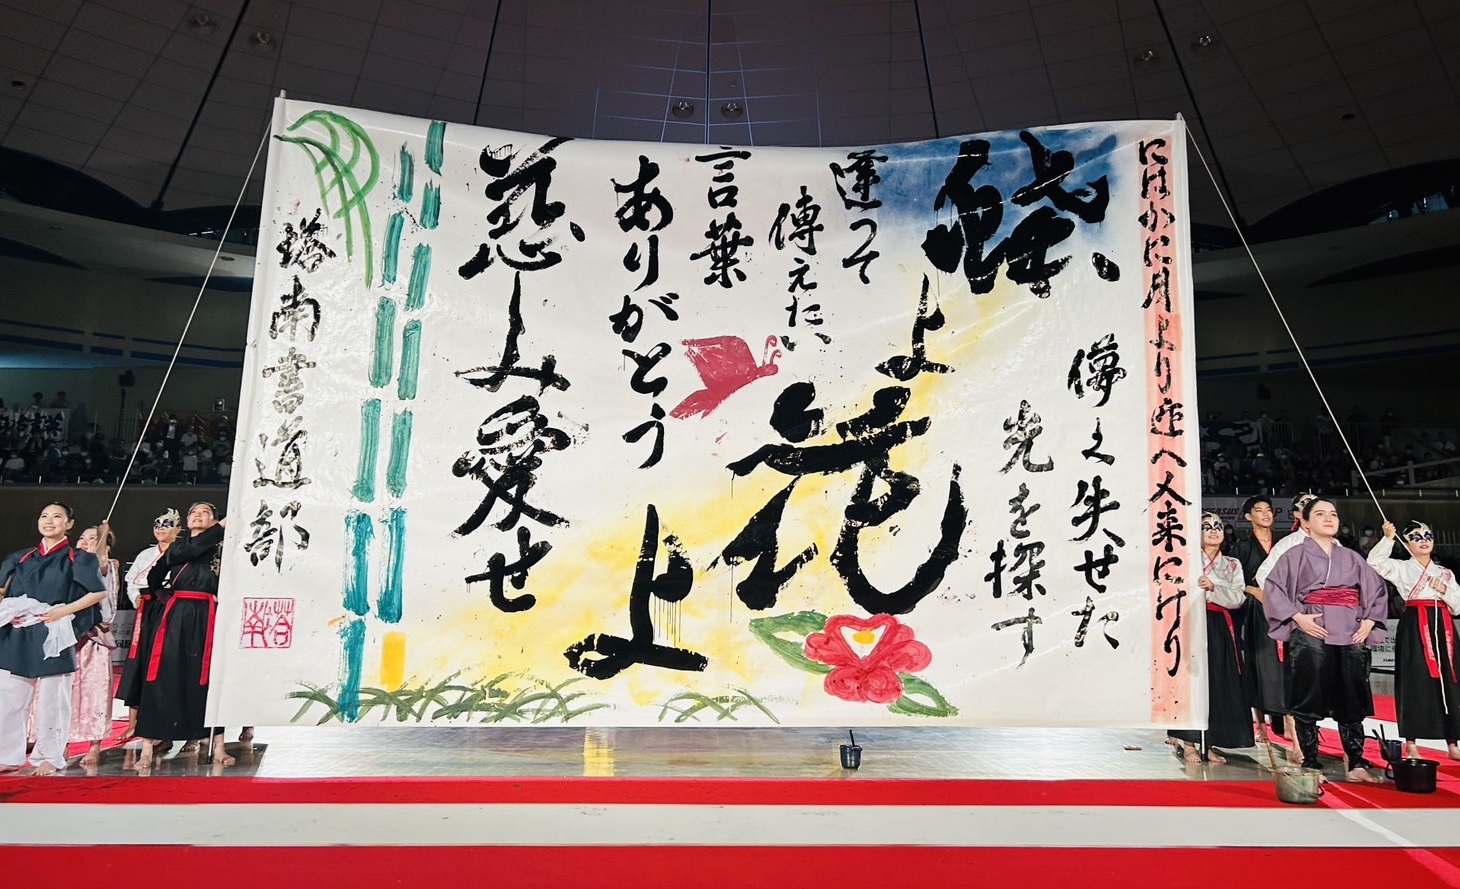 にはかに月より迎へ人来にけり
儚く失せた
光を探す
蝶よ
花よ
逢って
傳えたい
言葉
ありがとう
慈しみ愛せ
塔南書道部
塔南